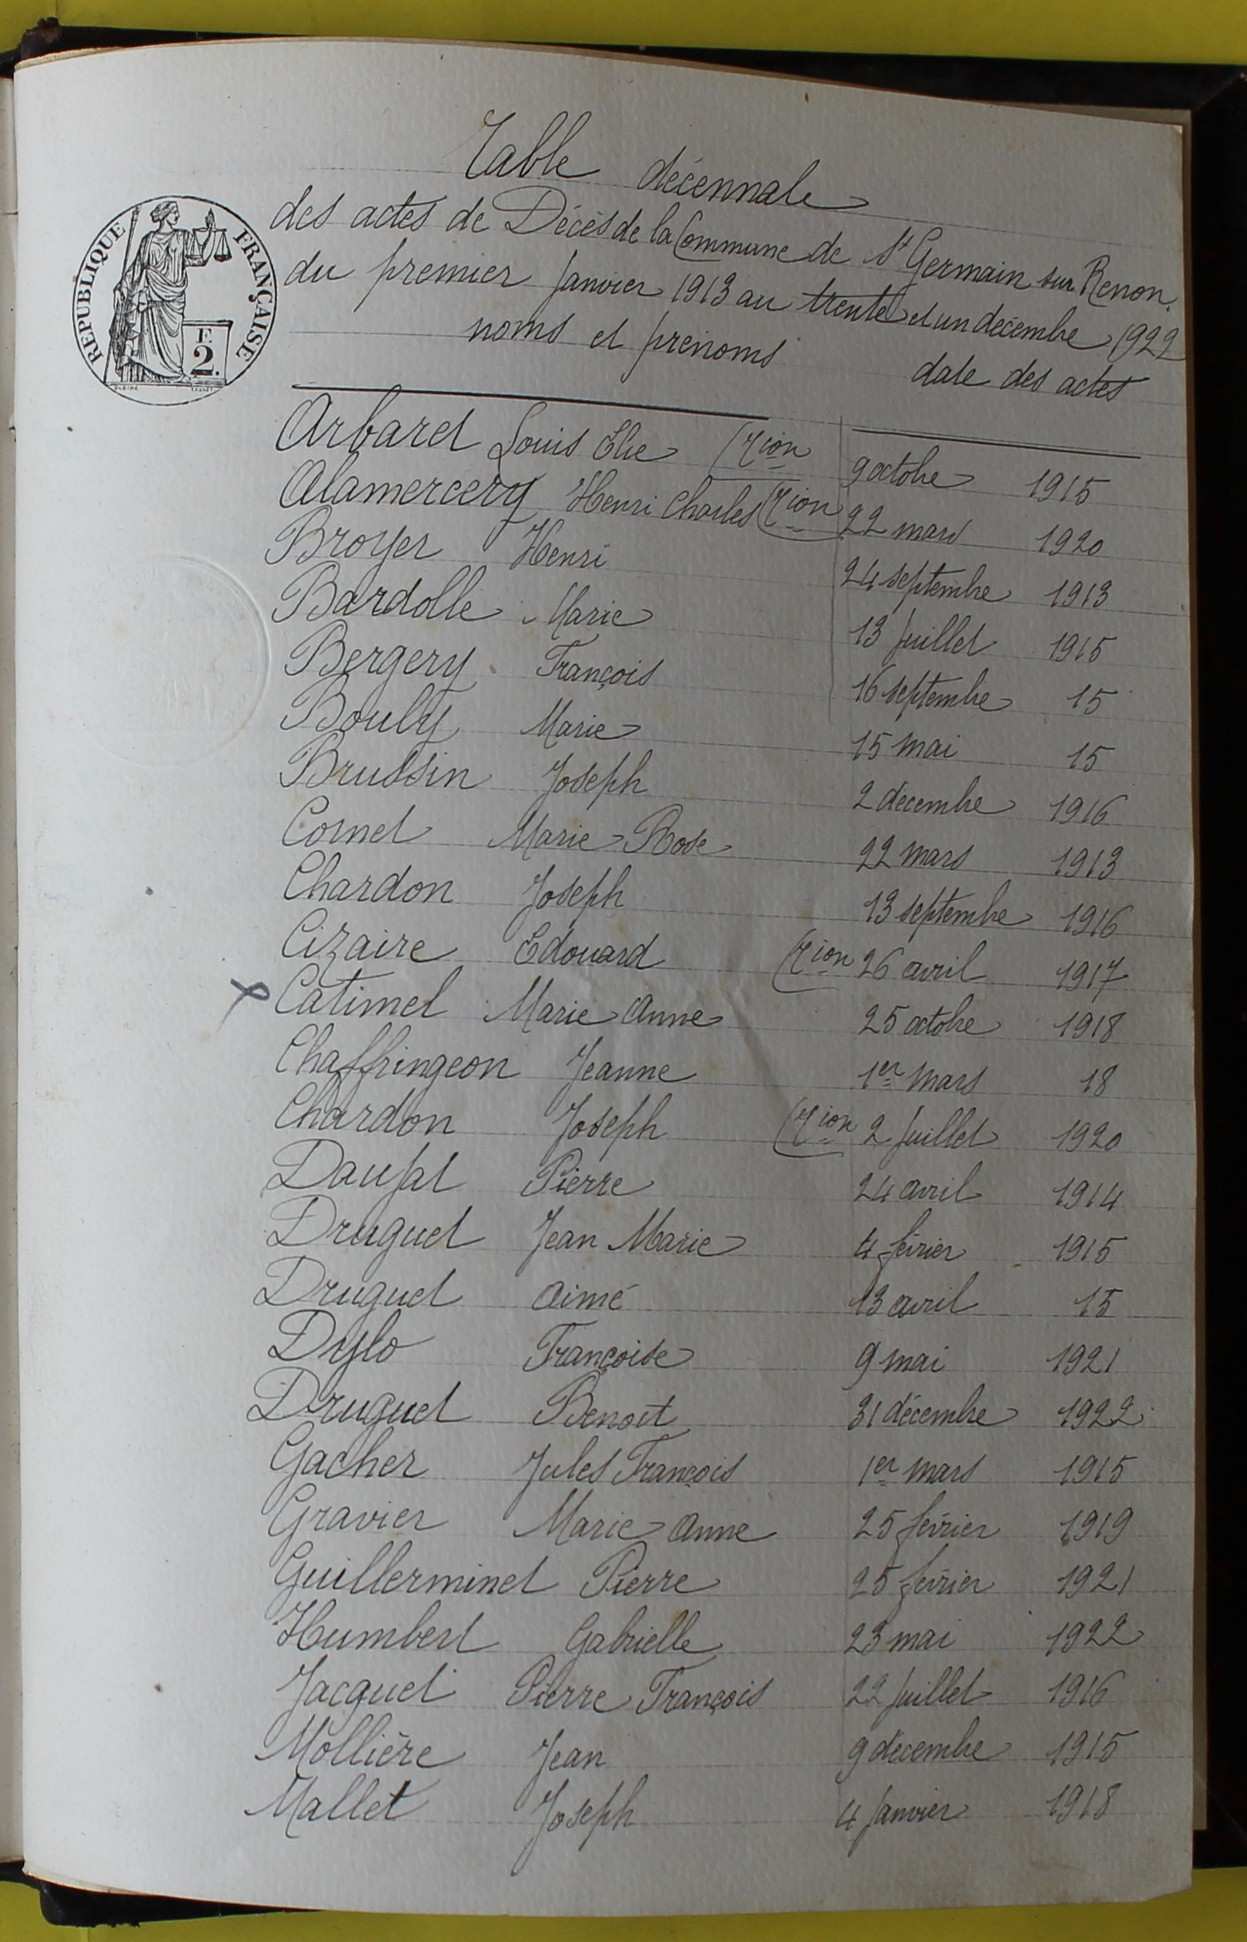 Table décennale
des actes de Décès de la Commune de St Germain sur Renon
du premier Janvier 1913 au trente et un décembre 1922
noms et prénoms date des actes
RÉPUBLIQUE FRANÇAISE
F.
2.
Arbaret Louis Elie (Tion 9 octobre 1915
Alamercery Henri Charles (Tion 22 mars 1920
Broyer Henri 24 septembre 1913
Bardolle Marie 13 Juillet 1915
Bergery François 16 septembre 15
Bouly Marie 15 mai 15
Brussin Joseph 2 décembre 1916
Cornet Marie Rose 22 mars 1913
Chardon Joseph 13 septembre 1916
Cizaire Edouard (Tion 26 avril 1917
Catimel Marie Anne 25 octobre 1918
Chaffringeon Jeanne 1er mars 18
Chardon Joseph (Tion 2 Juillet 1920
Daujat Pierre 24 avril 1914
Druguet Jean Marie 4 février 1915
Druguet Aimé 13 avril 15
Dylo Françoise 9 mai 1921
Druguet Benoit 31 décembre 1922
Gacher Jules François 1er mars 1915
Gravier Marie Anne 25 février 1919
Guillerminet Pierre 25 février 1921
Humbert Gabrielle 23 mai 1922
Jacquet Pierre François 22 Juillet 1916
Mollière Jean 9 décembre 1915
Mallet Joseph 4 Janvier 1918